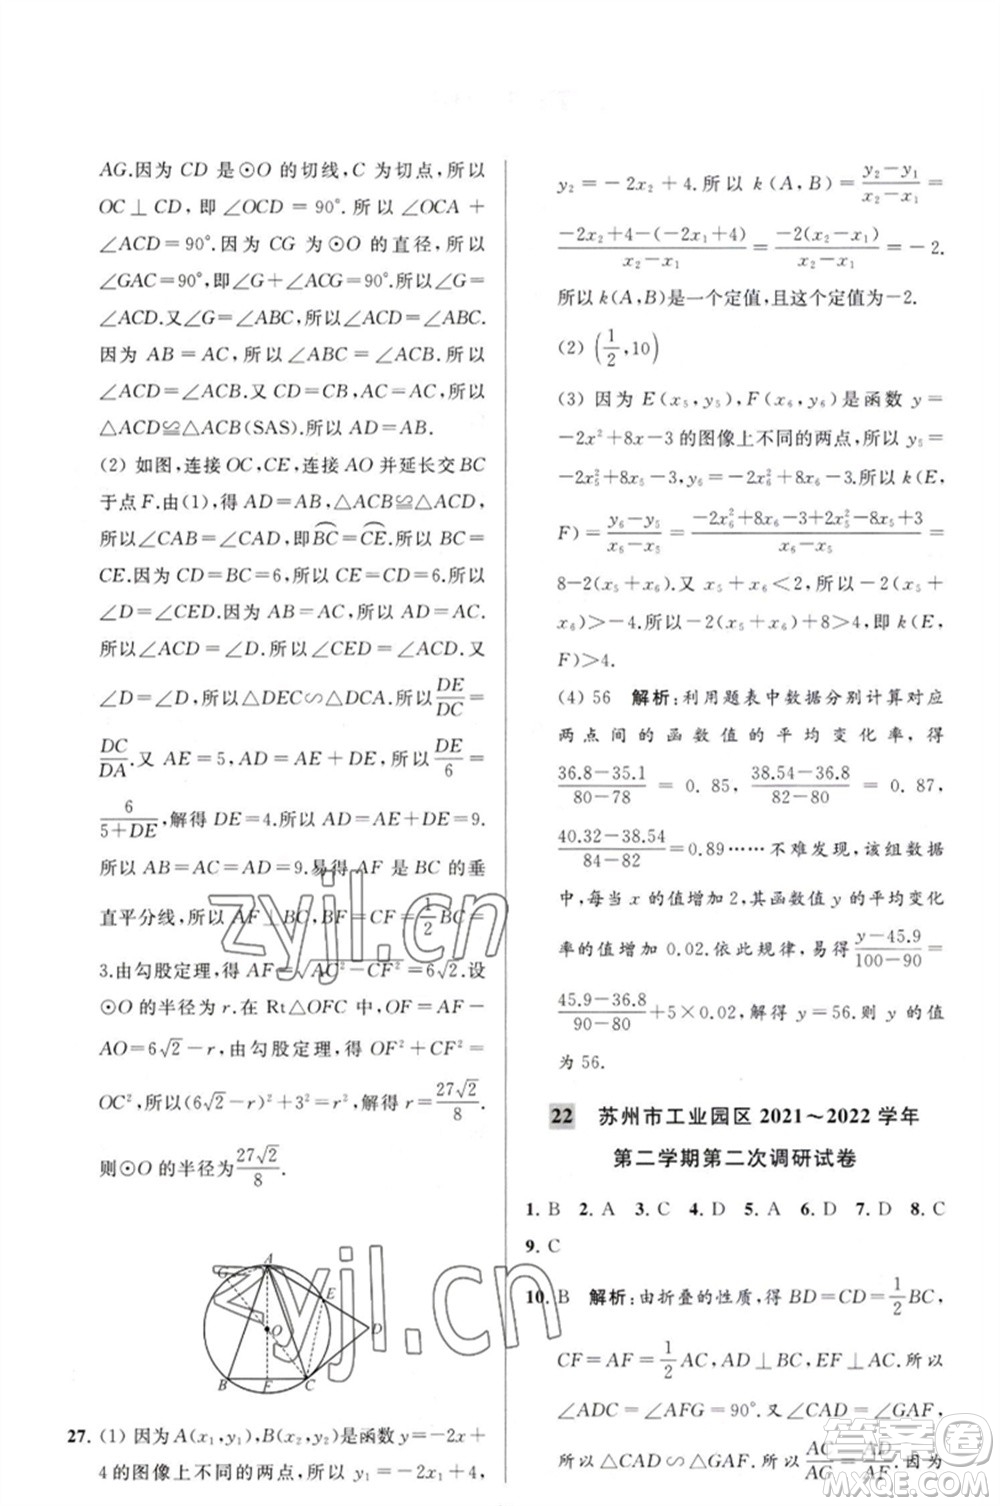 AG.因为 CD 是⊙O 的切线,C 为切点,所以
OC⊥CD,即∠OCD=90°.所以∠OCA+
∠ACD=90°.因为 CG 为⊙O 的直径,所以
∠GAC=90°,即∠G+∠ACG=90°.所以∠G=
∠ACD.又∠G=∠ABC,所以∠ACD=∠ABC.
因为 AB=AC,所以∠ABC=∠ACB.所以
∠ACD=∠ACB.又 CD=CB,AC=AC,所以
△ACD≌△ACB(SAS).所以 AD=AB.
(2) 如图,连接 OC,CE,连接 AO 并延长交 BC
于点 F.由(1),得 AD=AB,△ACB≌△ACD,
所以∠CAB=∠CAD,即BC⌒=CE⌒.所以 BC=
CE.因为 CD=BC=6,所以 CE=CD=6.所以
∠D=∠CED.因为 AB=AC,所以 AD=AC.
所以∠ACD=∠D.所以∠CED=∠ACD.又
∠D=∠D,所以△DEC∽△DCA.所以DE/DC=
DC/DA.又 AE=5,AD=AE+DE,所以DE/6=
6/(5+DE),解得 DE=4.所以 AD=AE+DE=9.
所以 AB=AC=AD=9.易得 AF 是 BC 的垂
直平分线,所以 AF⊥BC,BF=CF=1/2BC=
3.由勾股定理,得 AF=√(AC²-CF²)=6√2.设
⊙O 的半径为 r.在 Rt△OFC 中,OF=AF-
AO=6√2-r,由勾股定理,得 OF²+CF²=
OC²,所以(6√2-r)²+3²=r²,解得 r=27√2/8.
则⊙O 的半径为27√2/8.
G A E O D B F C
27. (1) 因为 A(x₁,y₁),B(x₂,y₂)是函数 y=-2x+
4 的图像上不同的两点,所以 y₁=-2x₁+4,
y₂=-2x₂+4.所以 k(A,B)=(y₂-y₁)/(x₂-x₁)=
(-2x₂+4-(-2x₁+4))/(x₂-x₁)=(-2(x₂-x₁))/(x₂-x₁)=-2.
所以 k(A,B)是一个定值,且这个定值为-2.
(2) (1/2,10)
(3) 因为 E(x₅,y₅),F(x₆,y₆)是函数 y=
-2x²+8x-3 的图像上不同的两点,所以 y₅=
-2x₅²+8x₅-3,y₆=-2x₆²+8x₆-3.所以 k(E,
F)=(y₆-y₅)/(x₆-x₅)=(-2x₆²+8x₆-3+2x₅²-8x₅+3)/(x₆-x₅)=
8-2(x₅+x₆).又 x₅+x₆<2,所以-2(x₅+
x₆)>-4.所以-2(x₅+x₆)+8>4,即 k(E,
F)>4.
(4) 56 解析:利用题表中数据分别计算对应
两点间的函数值的平均变化率,得
(36.8-35.1)/(80-78)=0.85,(38.54-36.8)/(82-80)=0.87,
(40.32-38.54)/(84-82)=0.89……不难发现,该组数据
中,每当 x 的值增加 2,其函数值 y 的平均变化
率的值增加 0.02.依此规律,易得(y-45.9)/(100-90)=
(45.9-36.8)/(90-80)+5×0.02,解得 y=56.所以 y 的值
为 56.
22 苏州市工业园区 2021～2022 学年
第二学期第二次调研试卷
1. B 2. A 3. C 4. D 5. A 6. D 7. D 8. C
9. C
10. B 解析:由折叠的性质,得 BD=CD=1/2BC,
CF=AF=1/2AC,AD⊥BC,所以
∠ADC=∠AFG=90°.又∠CAD=∠GAF,
所以△CAD∽△GAF.所以AC/AG=AD/AF.因为
zyjl.cn
zyjl.cn
答案圈
MXQE.COM